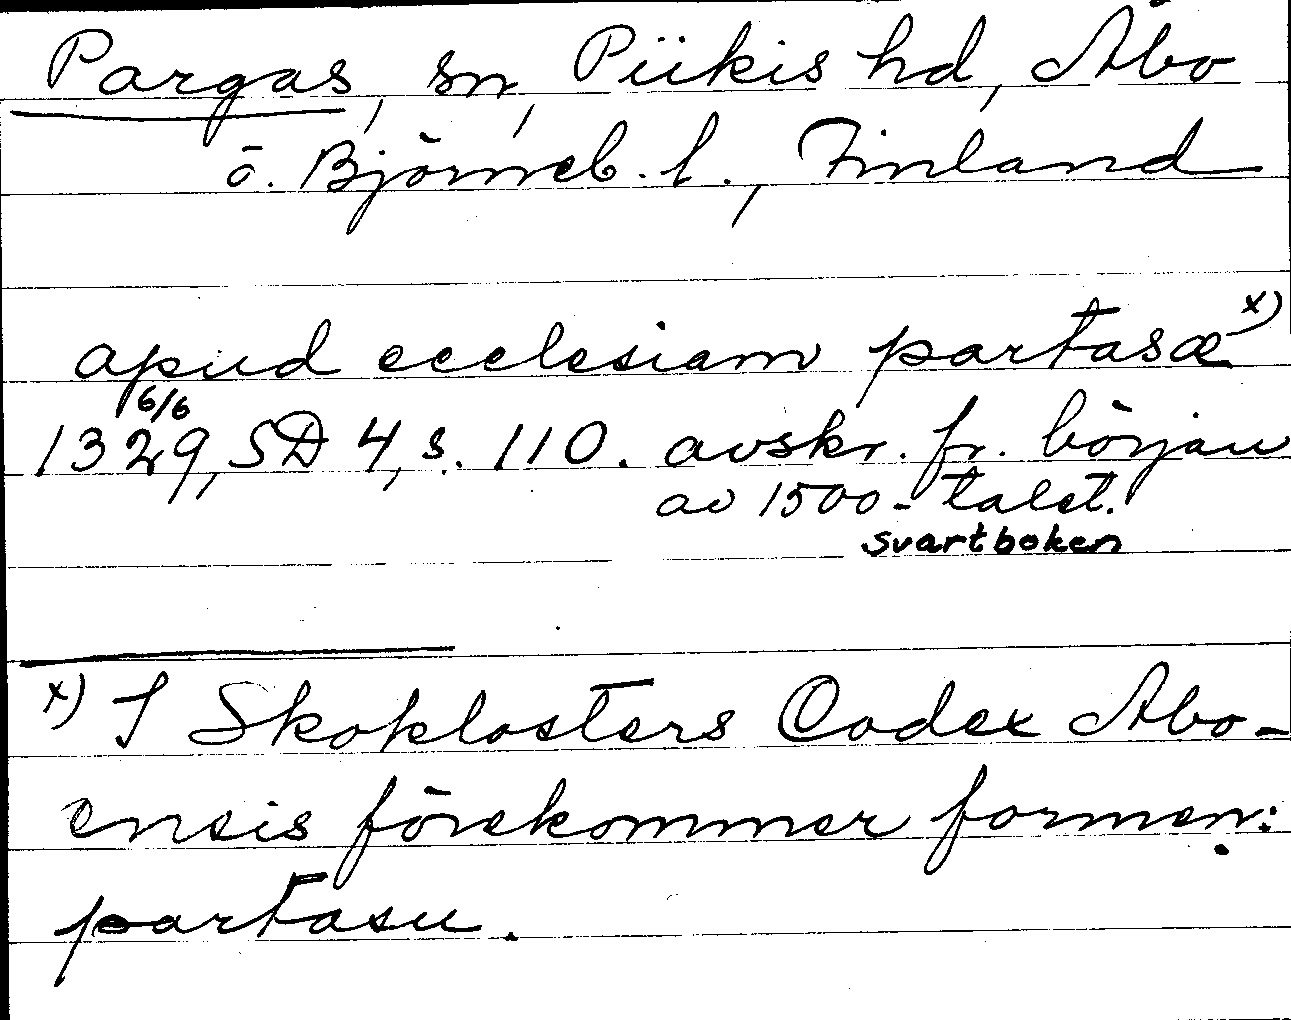 Pargas, sn, Piikis hd, Åbo
o. Björneb. l., Finland
apud ecclesiam partasæ x)
6/6
1329, SD 4, s. 110. avskr. fr. början
av 1500-talet.
svartboken
x) I Skoklosters Codex Abo-
ensis förekommer formen:
partasu.